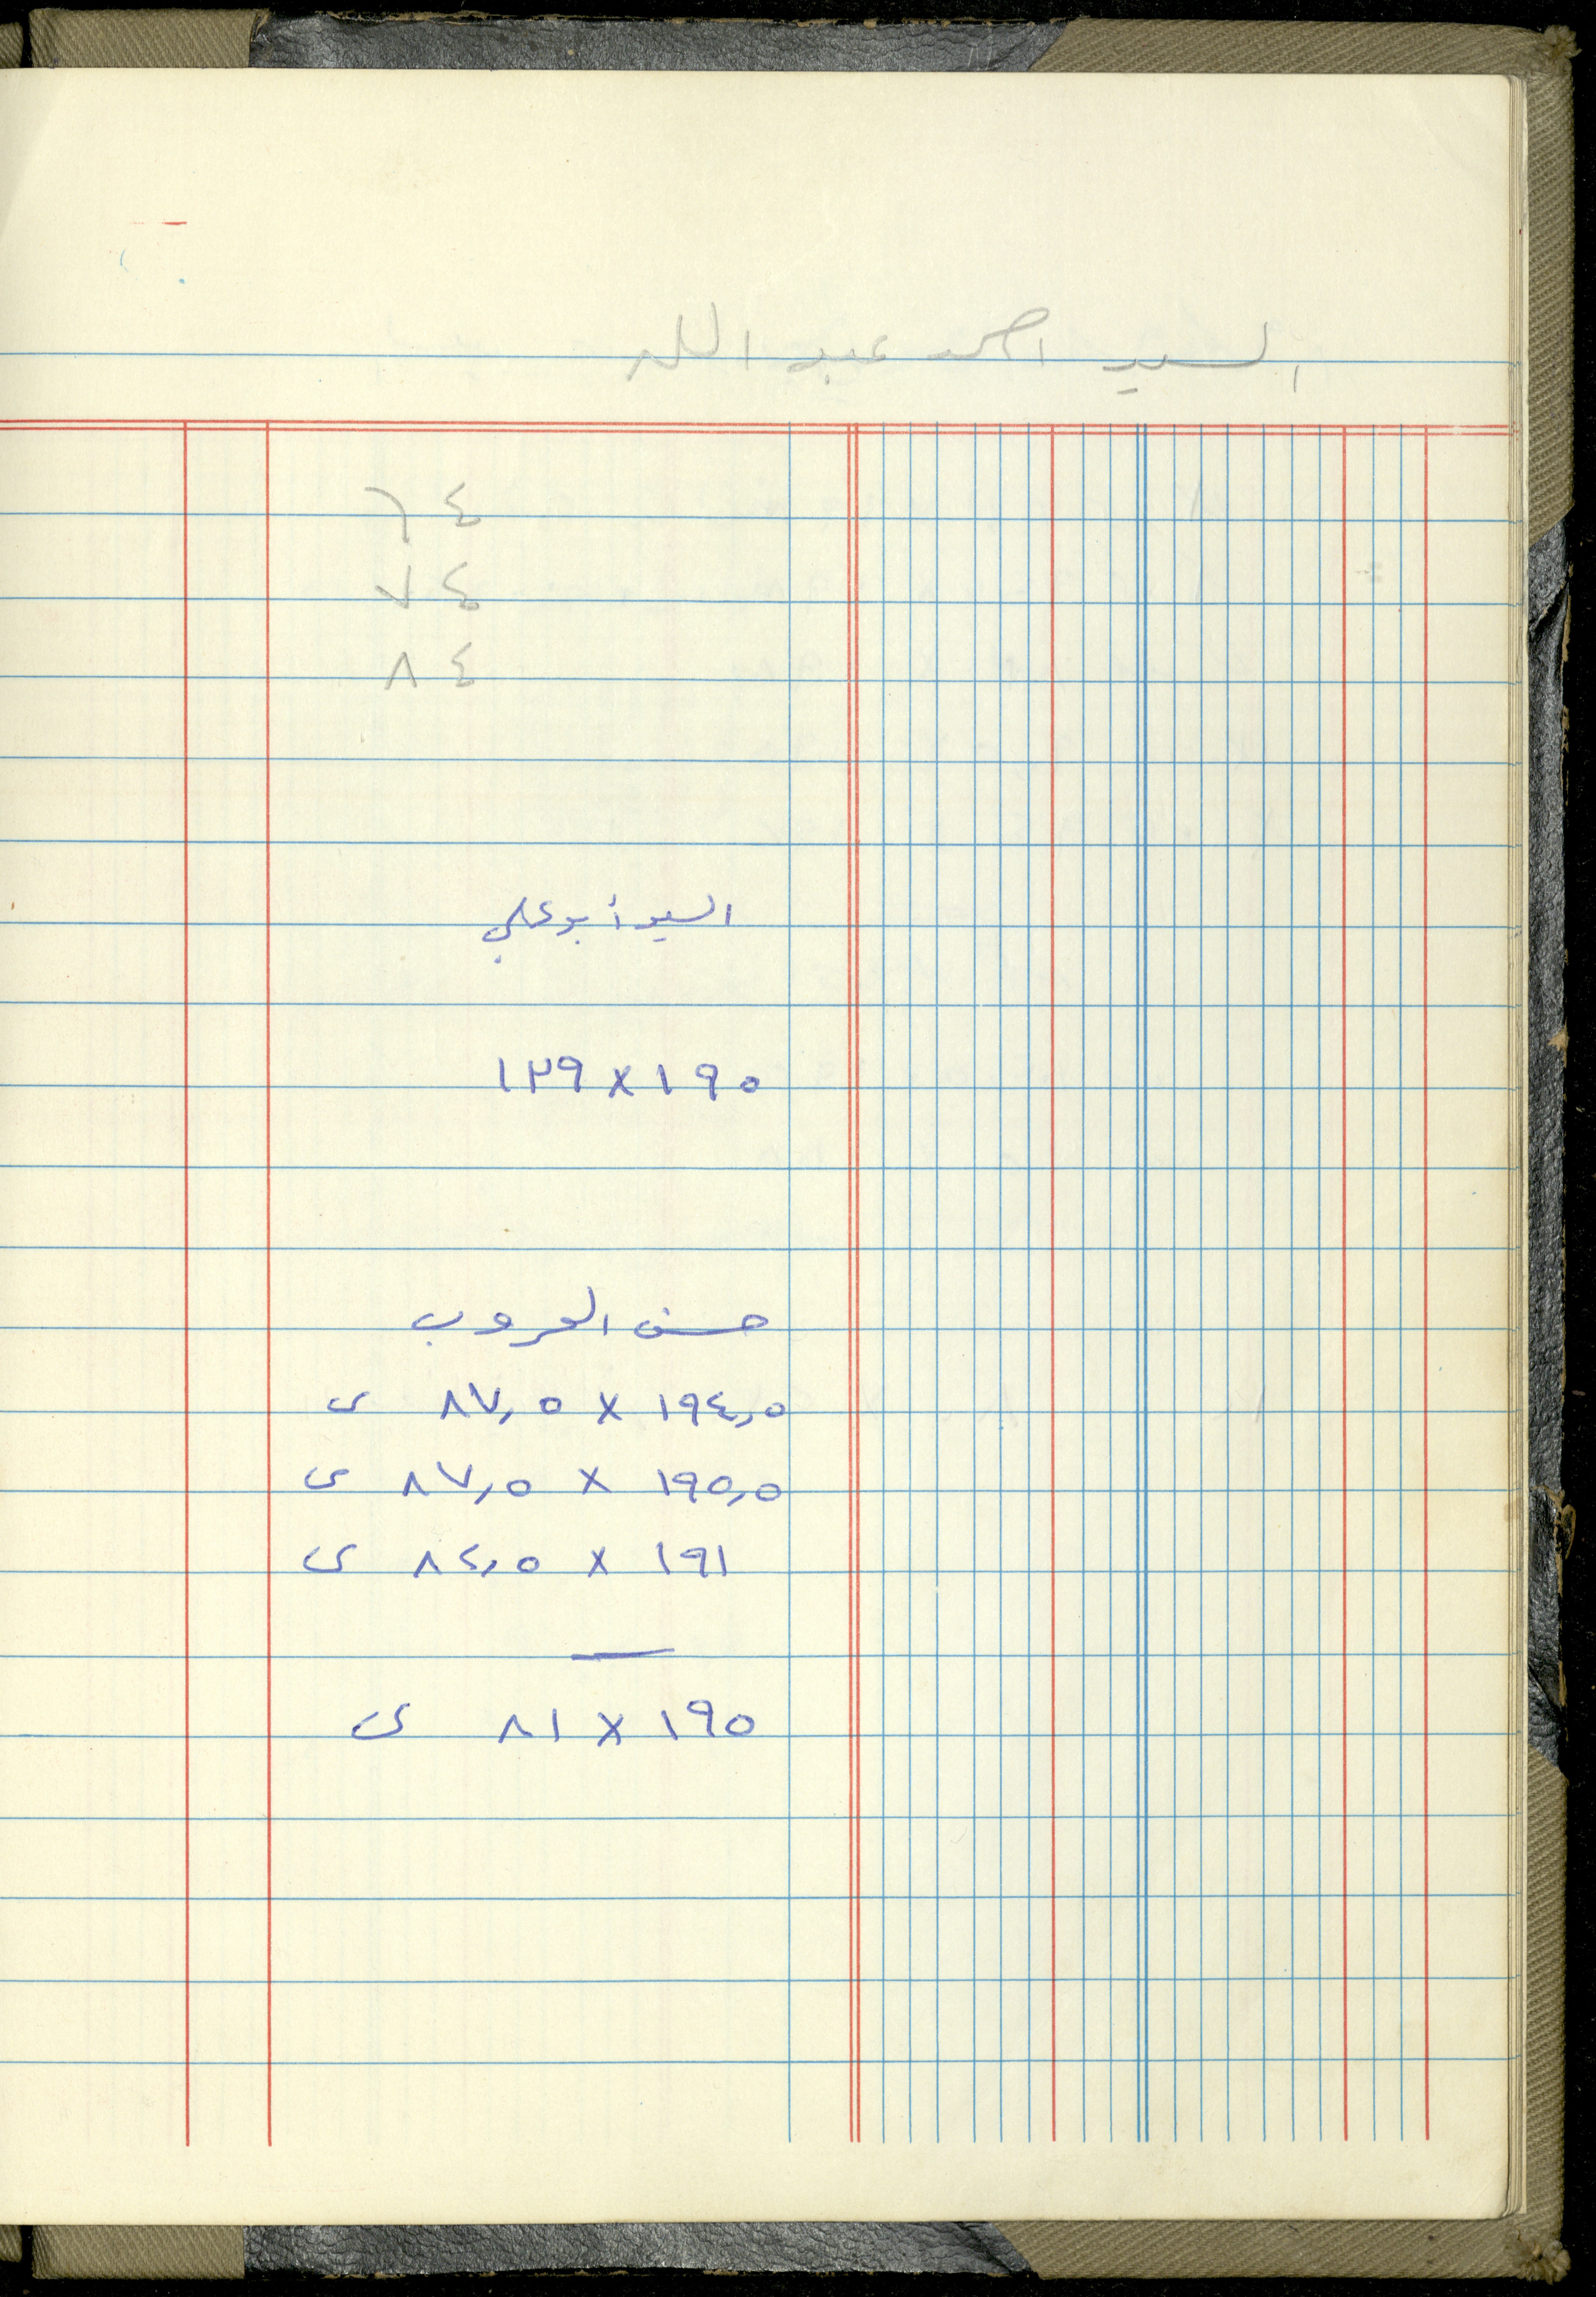 السيد احمد عبد الله
٦٤
٧٤
٨٤
السيد أبو علي
١٢٩ × ١٩٠
حسن العروب
٨٧,٥ × ١٩٤,٥ ى
٨٧,٥ × ١٩٥,٥ ى
٨٢,٥ × ١٩١ ى
٨١ × ١٩٥ ى